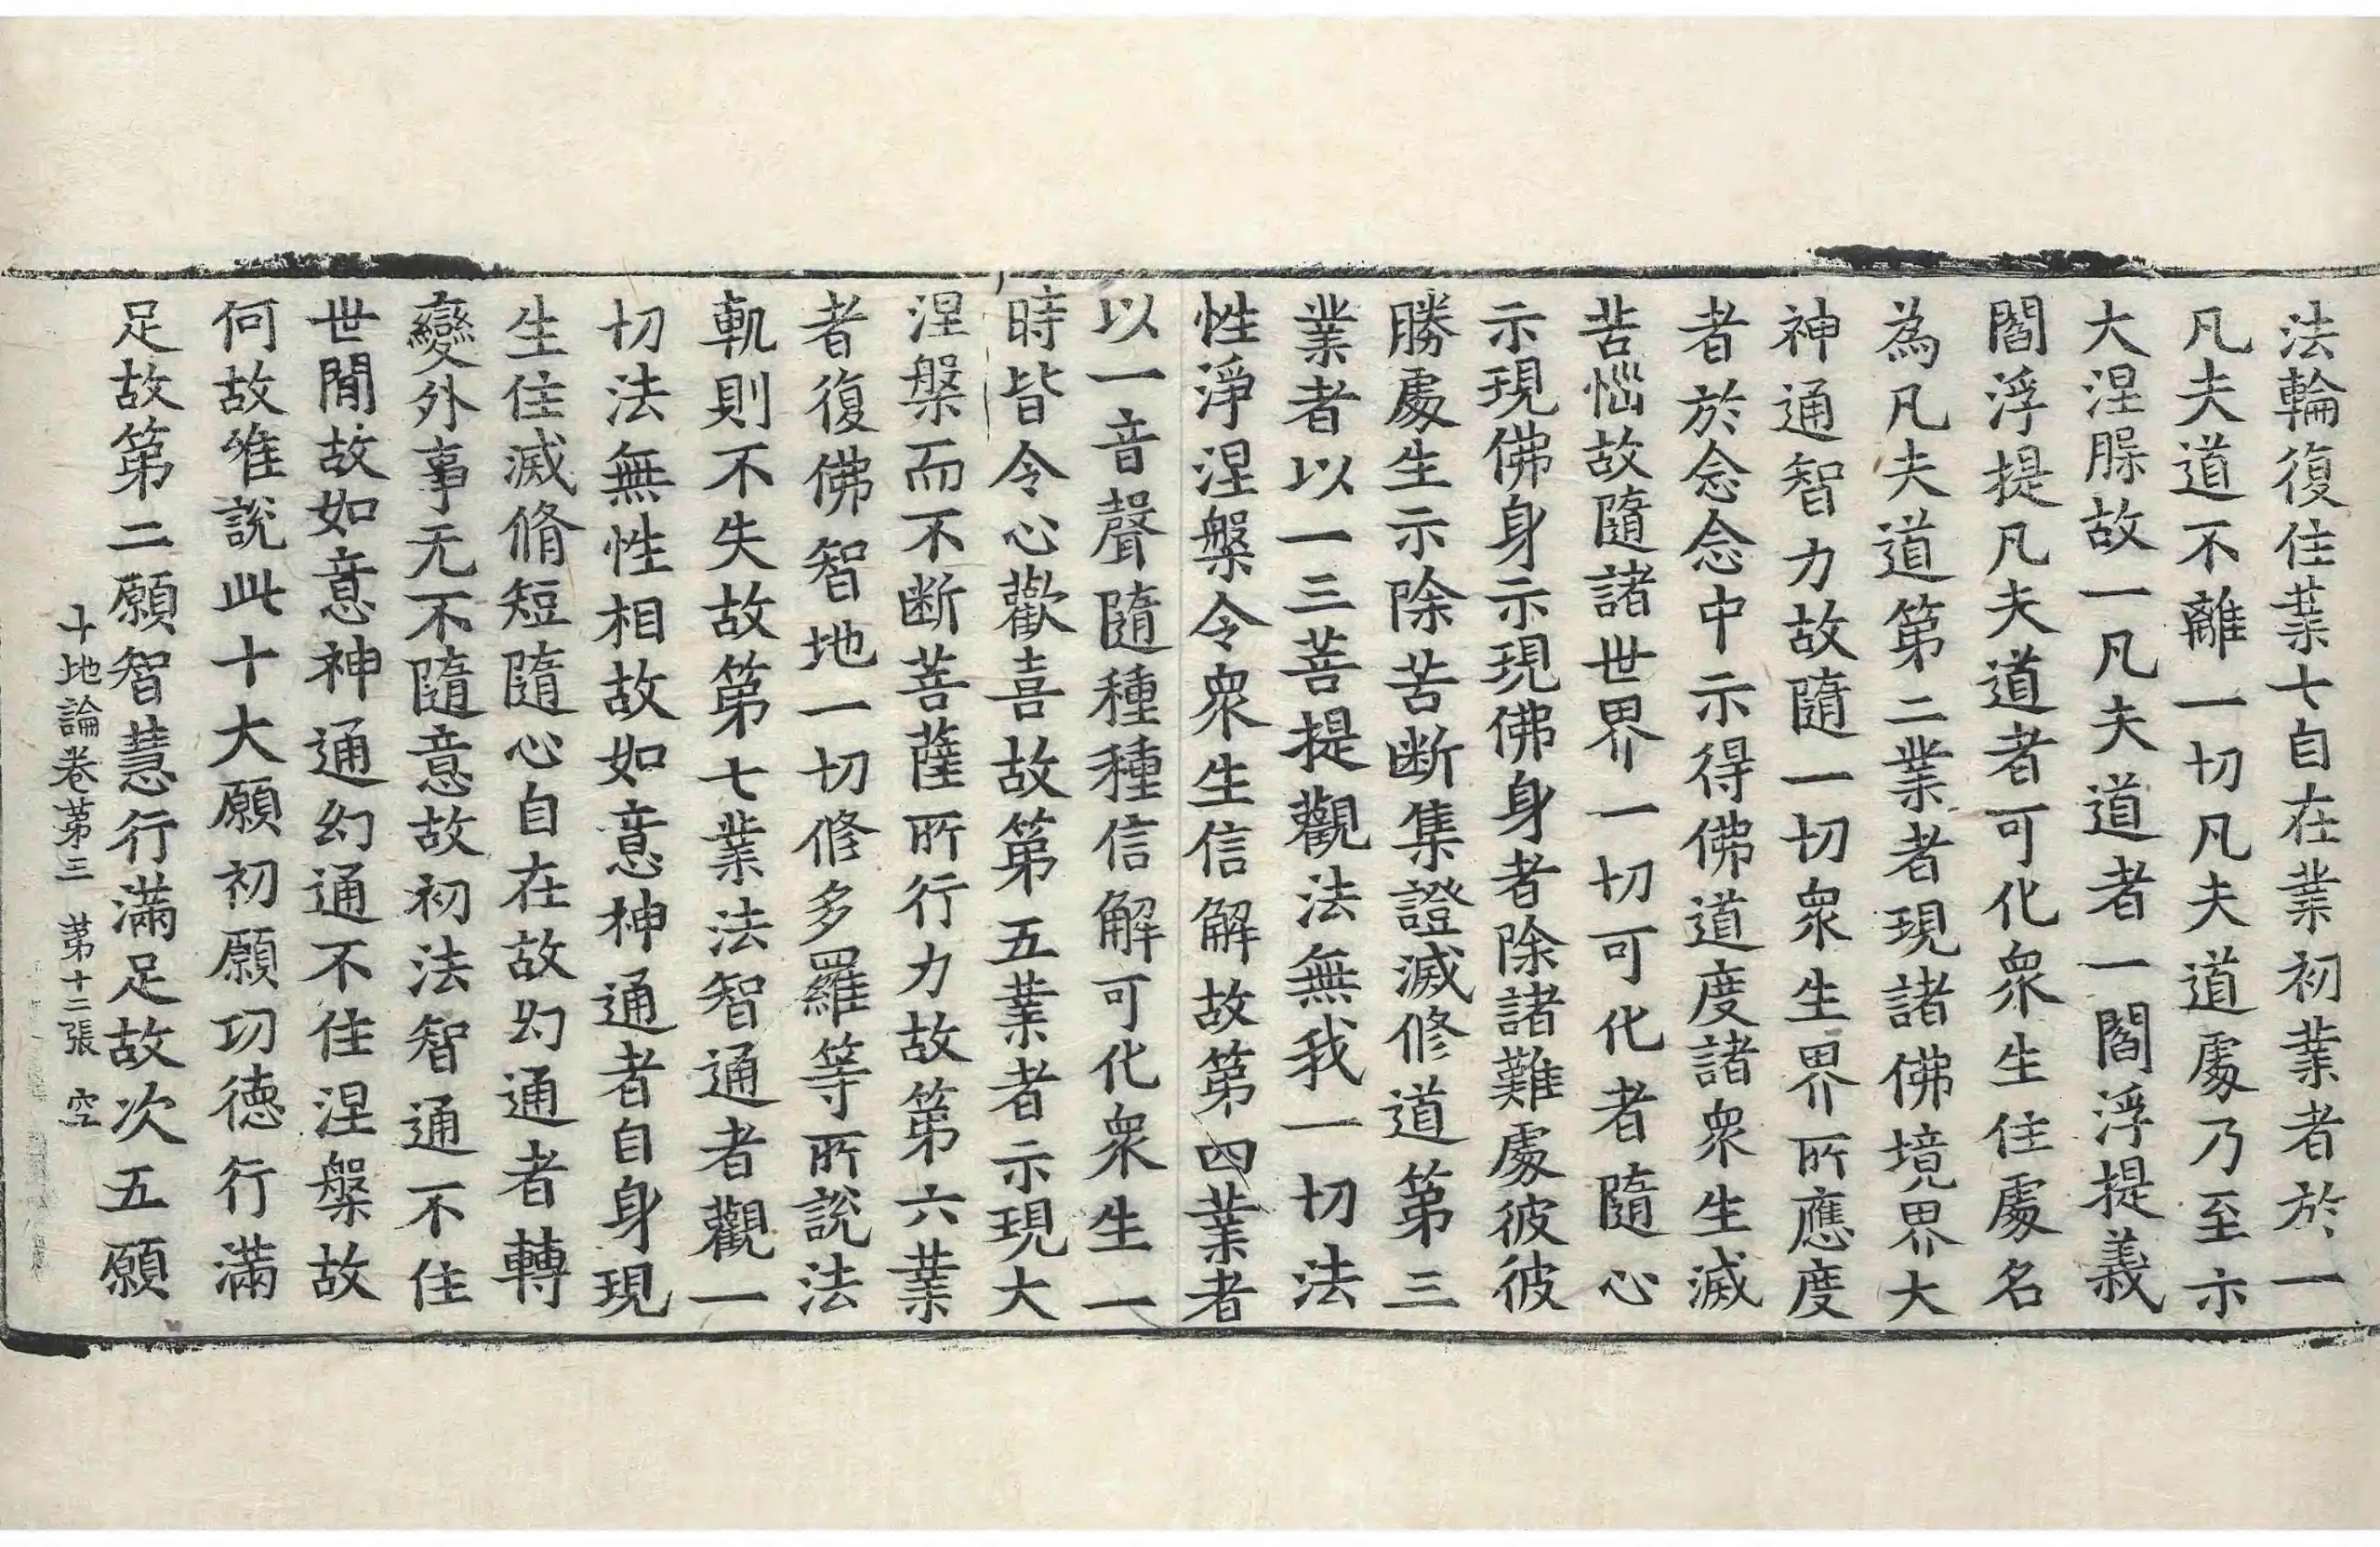 法輪復住業七自在業初業者於一
凡夫道不離一切凡夫道處乃至示
大涅槃故一凡夫道者一閻浮提義
閻浮提凡夫道者可化衆生住處名
為凡夫道第二業者現諸佛境界大
神通智力故隨一切衆生界所應度
者於念念中示得佛道度諸衆生滅
苦惱故隨諸世界一切可化者隨心
示現佛身示現佛身者除諸難處彼彼
勝處生示除苦断集證滅修道第三
業者以一三菩提觀法無我一切法
性淨涅槃令衆生信解故第四業者
以一音聲隨種種信解可化衆生一
時皆令心歡喜故第五業者示現大
涅槃而不断菩薩所行力故第六業
者復佛智地一切修多羅等所說法
軌則不失故第七業法智通者觀一
切法無性相故如意神通者自身現
生住滅脩短隨心自在故幻通者轉
變外事无不隨意故初法智通不住
世間故如意神通幻通不住涅槃故
何故唯説此十大願初願功德行滿
足故第二願智慧行滿足故次五願
十地論卷第三 第十二張 空